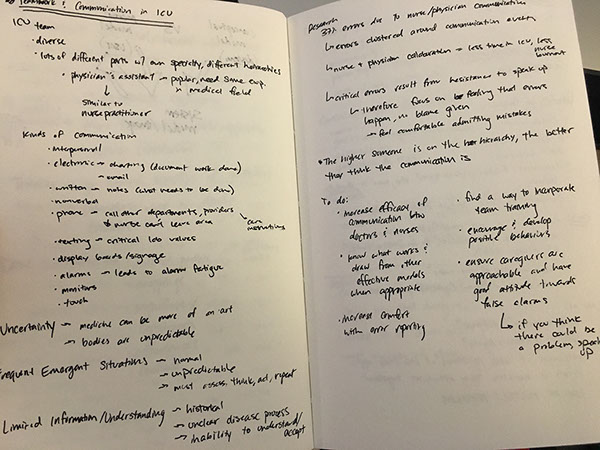 Teamwork & Communication in ICU
ICU team
• diverse
• lots of different parts w/ own specialty, different hierarchies
• physician's assistant → popular, need some exp. in medical field
↓
similar to
nurse practitioner
Kinds of communication
• interpersonal
• electronic → charting (document work done)
→ email
• written → notes (what needs to be done)
• nonverbal
• phone → call other departments, providers
↳ nurse can't leave area
• texting → critical lab values
• display boards/signage
• alarms → leads to alarm fatigue
• monitors
• touch
Uncertainty → medicine can be more of an art
→ bodies are unpredictable
Frequent Emergent Situations → normal
→ unpredictable
→ must assess, think, act, repeat
Limited Information/Understanding → historical
→ unclear disease process
→ inability to understand/
accept
Research
37% errors due to nurse/physician communication
↳ errors clustered around communication
↳ nurse & physician collaboration → less time in ICU, less
nurse
burnout
↳ critical errors result from hesitance to speak up
↳ therefore focus on feeling that errors
happen, no blame given
→ feel comfortable admitting mistakes
• The higher someone is on the hierarchy, the better
they think the communication is
To do:
• increase efficacy of
communication btw
doctors & nurses
• know what works &
draw from other
effective models
when appropriate
• increase comfort
with error reporting
• find a way to incorporate
team training
• encourage & develop
positive behaviors
• ensure caregivers are
approachable and have
good attitude towards
false alarms
↳ if you think
there could be
a problem, speak
up